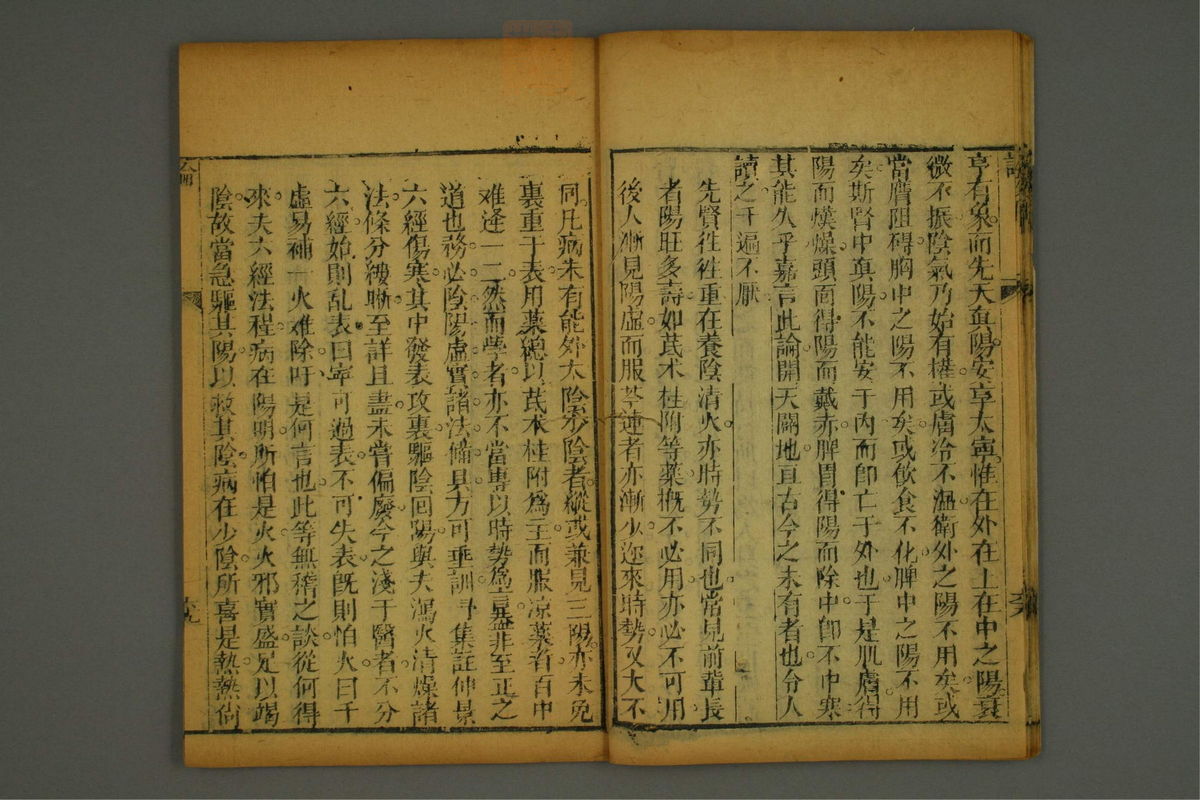 亨有象而先天真陽安享太寧惟在外在上在中之陽衰
微不振陰氣乃始有權或膚冷不溫衛外之陽不用矣或
當膺阻碍胸中之陽不用矣或飲食不化脾中之陽不用
矣斯腎中真陽不能安于內而卽亡于外也于是肌膚得
陽而熯燥頭面得陽而戴赤脾胃得陽而除中卽不中寒
其能久乎嘉言此論開天闢地亘古今之未有者也令人
讀之千遍不厭
先賢徃徃重在養陰清火亦時勢不同也嘗見前輩長
者陽旺多壽如茋术桂附等藥概不必用亦必不可用
後人漸見陽虛而服芩連者亦漸少迩來時勢又大不
同凡病未有能外太陰少陰者縱或兼見三陽亦未免
裏重于表用藥總以茋术桂附爲主而服凉藥者百中
难逢一二然而學者亦不當專以時勢爲言盖非至正之
道也務必陰陽虛實諸法備具方可垂訓予集註仲景
六經傷寒其中發表攻裏驅陰囘陽與夫瀉火清燥諸
法條分縷晰至詳且盡未嘗偏廢今之淺于醫者不分
六經始則乱表曰寕可過表不可失表旣則怕火曰千
虛易補一火难除吁是何言也此等無稽之談從何得
來夫六經法程病在陽明所怕是火火邪實盛足以竭
陰故當急驅其陽以救其陰病在少陰所喜是熱熱尙